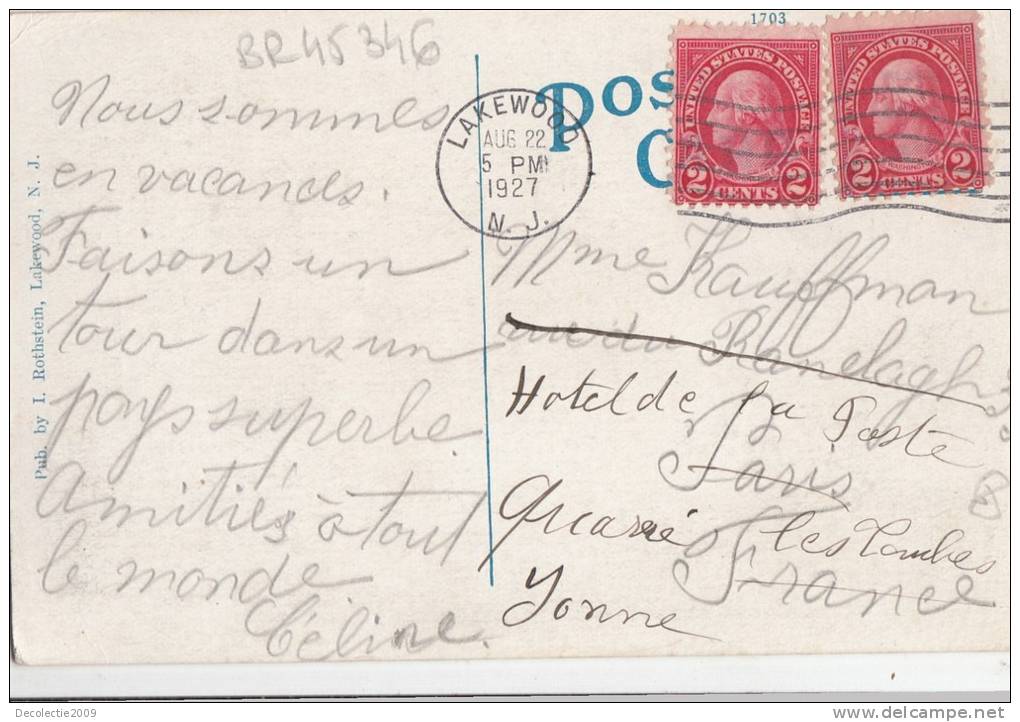 BR45346
1703
Nous sommes
en vacances.
Faisons un
tour dans un
pays superbe
Amitiés à tout
le monde
Céline.
Pub. by I. Rothstein, Lakewood, N. J.
LAKEWOOD
AUG 22
5 PM
1927
N. J.
UNITED STATES POSTAGE
2 CENTS 2
UNITED STATES POSTAGE
2 CENTS 2
Mme Kauffman
rue du Ranelagh
Paris
France
Hotel de la Poste
Quarré les Tombes
Yonne
Decolectie2009
www.delcampe.net